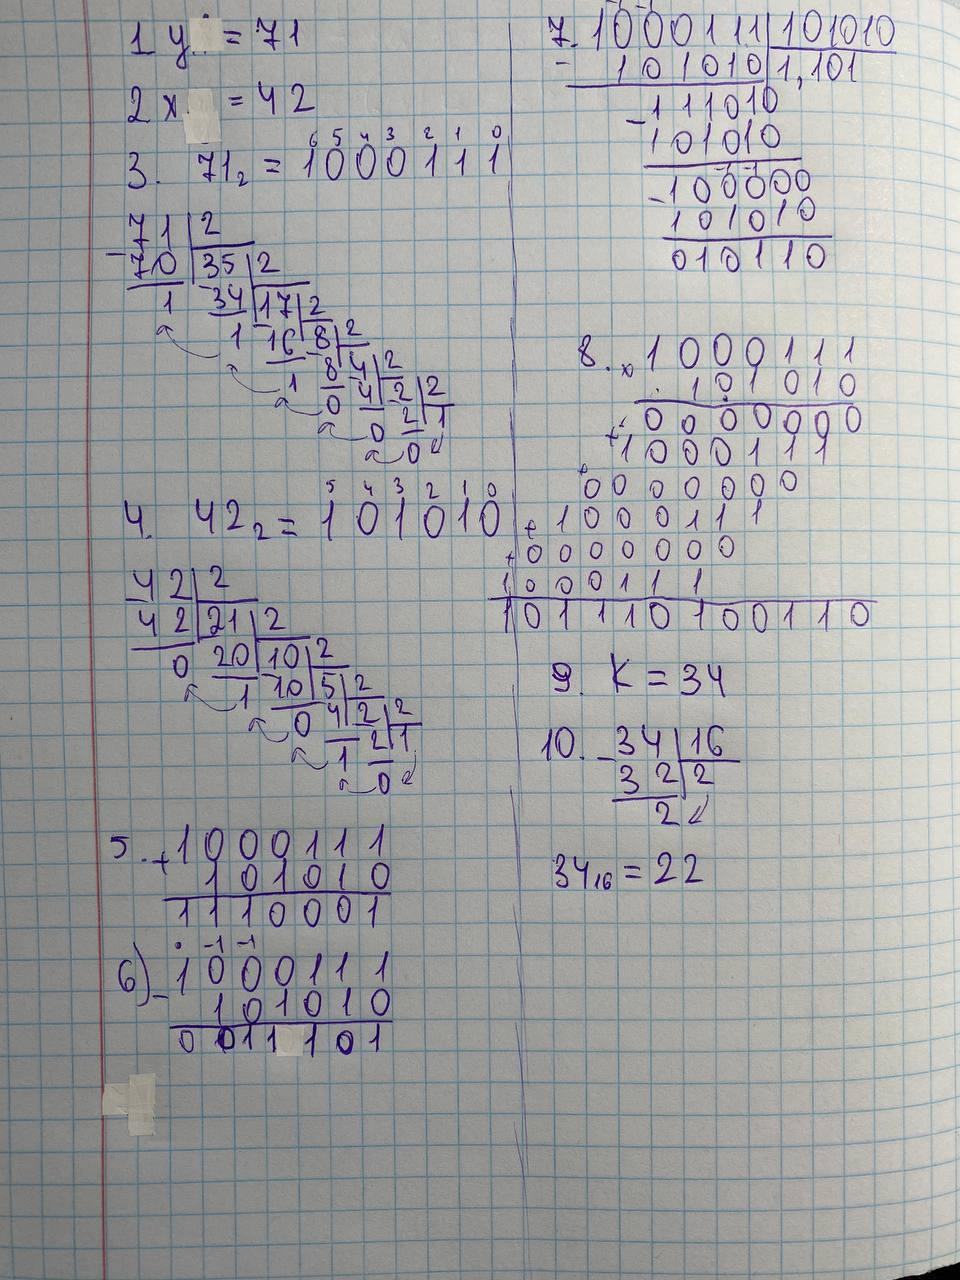 1 y = 71
2 x = 42
6 5 4 3 2 1 0
3. 71₂ = 1000111
71 | 2
- 70 | 35 | 2
1 34 | 17 | 2
1 16 | 8 | 2
1 8 | 4 | 2
0 4 | 2 | 2
0 2 | 1
0
5 4 3 2 1 0
4. 42₂ = 101010
42 | 2
42 | 21 | 2
0 20 | 10 | 2
1 10 | 5 | 2
0 4 | 2 | 2
1 2 | 1
0
5. + 1000111
101010
1110001
-1 -1
6) - 1000111
101010
0011101
7. 1000111 | 101010
- 101010 | 1,101
- 111010
101010
- 100000
101010
010110
8. x 1000111
101010
0000000
+ 1000111
0000000
+ 1000111
+ 0000000
1000111
101110100110
9. K = 34
10. - 34 | 16
32 | 2
2
34₁₆ = 22